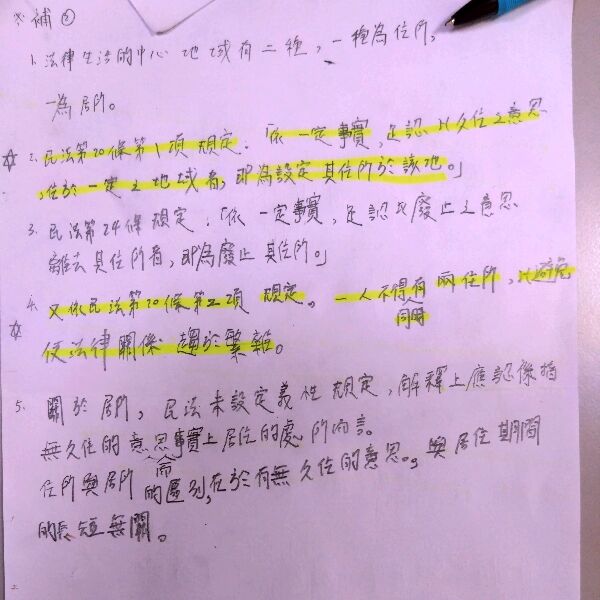 ※補②
1. 法律生活的中心地域有二種，一種為住所，
一為居所。
☆ 2. 民法第20條第1項規定：「依一定事實，足認以久住之意思
，住於一定之地域者，即為設定其住所於該地。」
3. 民法第24條規定：「依一定事實，足認以廢止之意思
離去其住所者，即為廢止其住所。」
☆ 4. 又依民法第20條第2項規定，一人不得有兩住所，以避免
同時
使法律關係趨於繁雜。
5. 關於居所，民法未設定義性規定，解釋上應認係指
無久住的意思事實上居住的處所而言。
而
住所與居所的區別，在於有無久住的意思。，與居住期間
的長短無關。